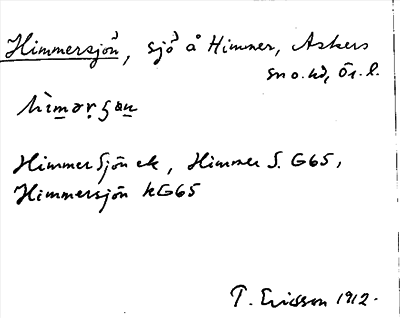 Himmersjön, sjö å Himmer, Askers
sn o. hd, Ör. l.
hìmərʂөn
Himmer Sjön ek, Himmer S. G65,
Himmersjön kG65
T. Ericsson 1912.